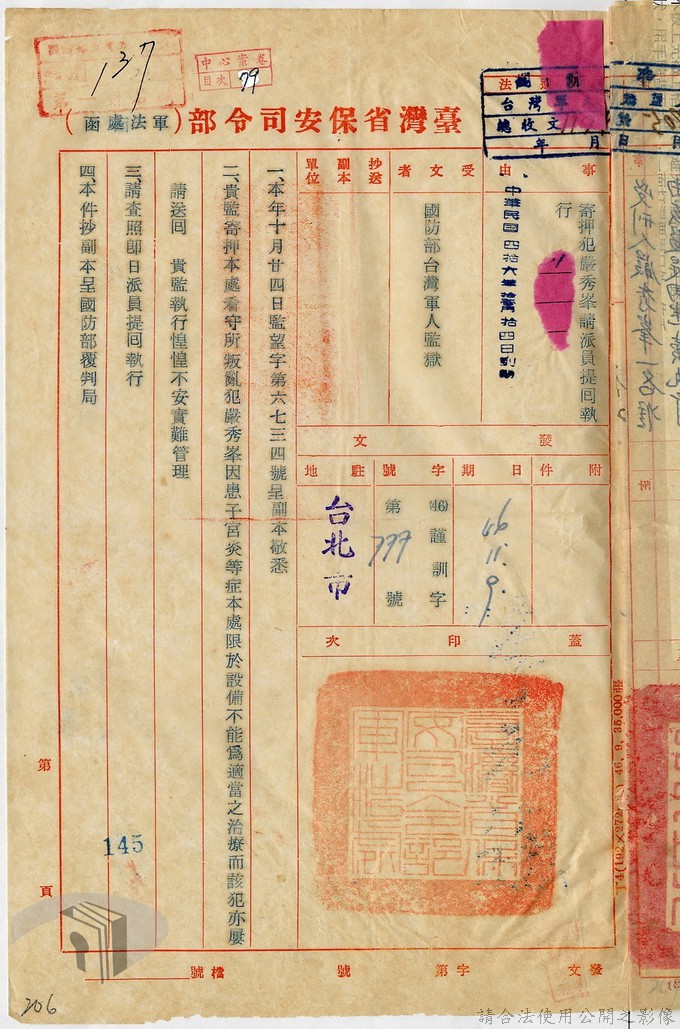 137
中心案卷
目次 79
臺灣省保安司令部（軍法處函）
台灣軍
總收文
年 月 日
事由
寄押犯嚴秀峯請派員提回執行
中華民國四拾六年
受文者
國防部台灣軍人監獄
抄送副本單位
發文
附件
日期
46 11 9
字號
(46)謹訓字第 799 號
駐地
台北市
蓋印
次
一、本年十月廿四日監望字第六七三四號呈副本敬悉
二、貴監寄押本處看守所叛亂犯嚴秀峯因患子宮炎等症本處限於設備不能為適當之治療而該犯亦屢
請送回 貴監執行惶惶不安實難管理
三、請查照即日派員提回執行
四、本件抄副本呈國防部覆判局
145
第 頁
發文 字第 號 檔號
206
請合法使用公開之影像